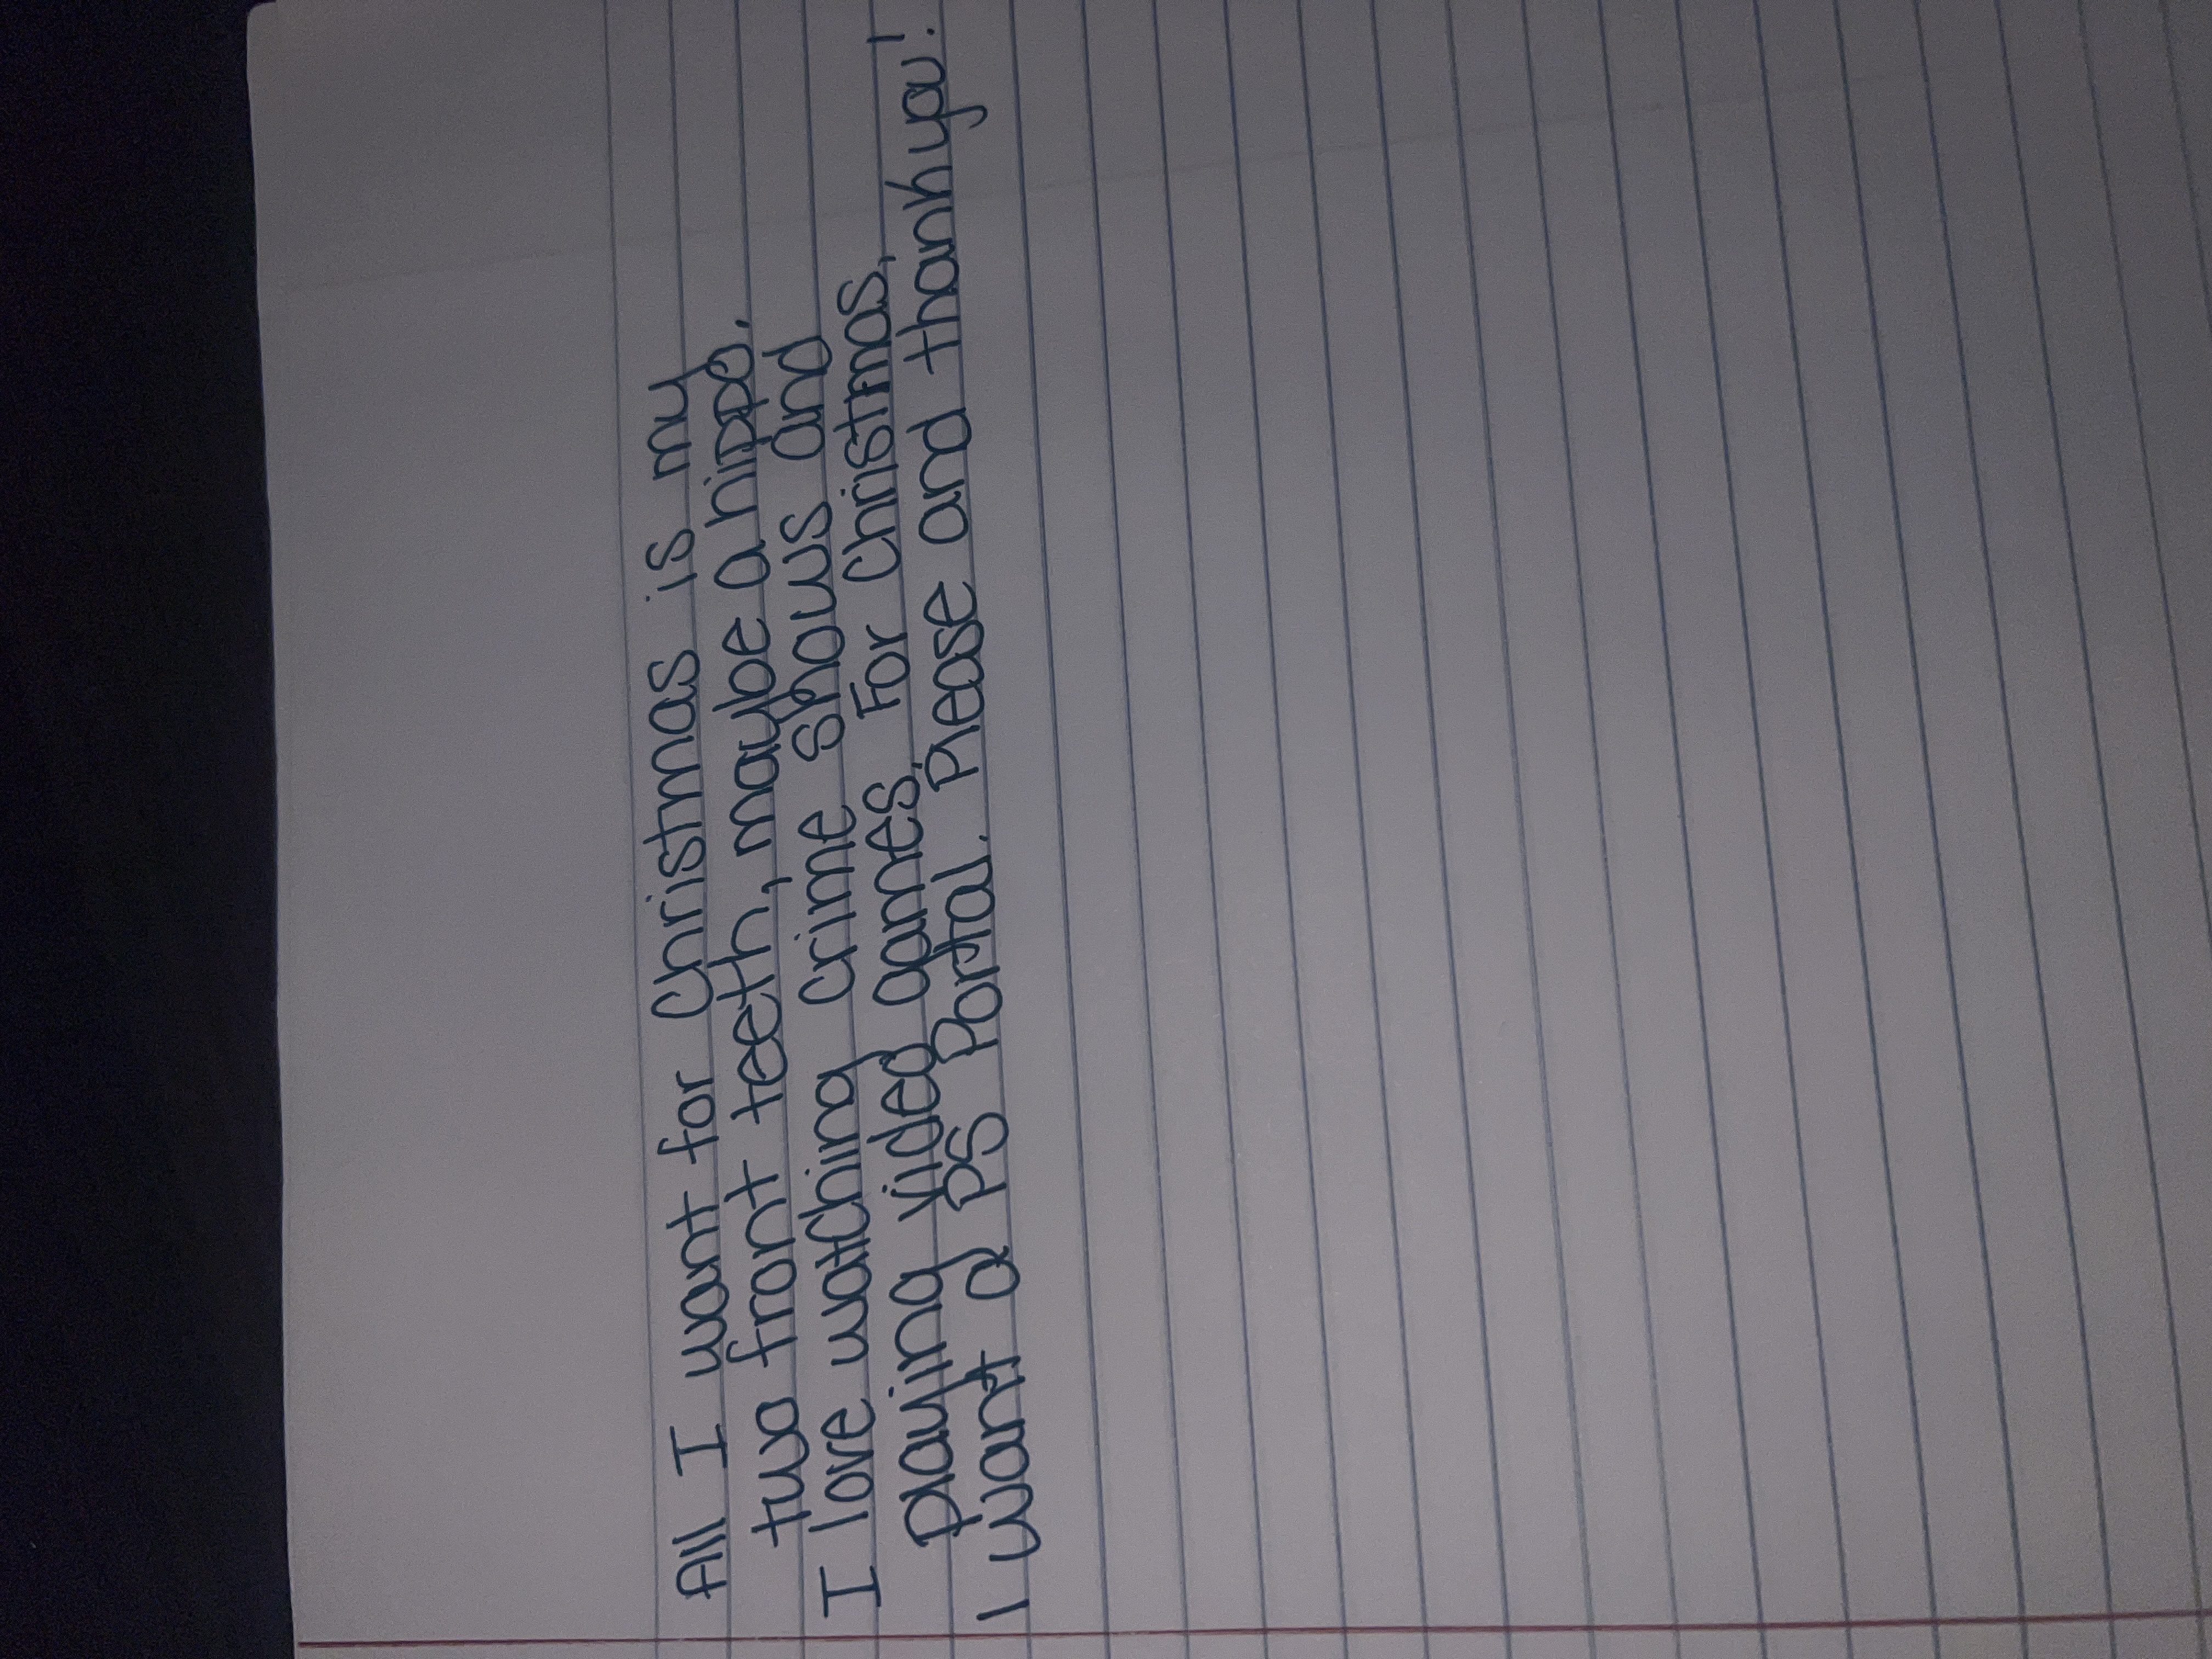 All I want for Christmas is my
two front teeth, maybe a hippo.
I love watching crime shows and
playing video games. For Christmas,
I want a PS Portal. Please and thank you!